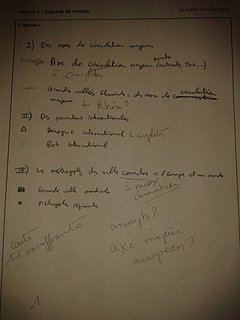 Annexe 1 - Légende du croquis (à rendre avec la copie)
Légende :
I) Des axes de circulation majeurs
Axe de circulation majeur
à compléter
Grandes villes
majeurs
+ Rhin ?
II) Des ouvertures internationales
Aéroport international à compléter
Port international
III) Les métropoles des villes connectées à l'Europe et au monde
à mieux
démontrer
Grande ville mondiale
Métropole régionale
carte
très insuffisante
aéroports ?
axe majeur
européen ?
1